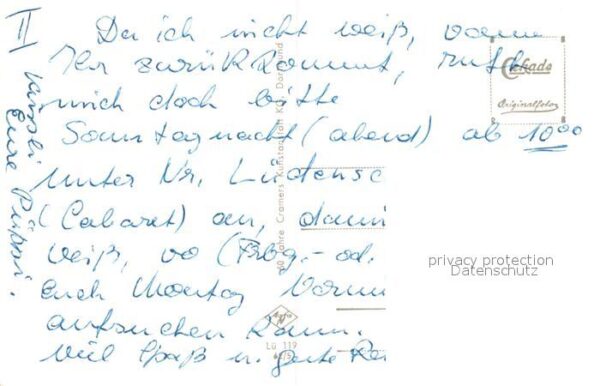 II
Da ich nicht weiß, wann
Ihr zurückkommt, ruft
mich doch bitte
Sonntagnacht (abend) ab 10⁰⁰
unter Nr. Lüdensc
(Cabaret) an, dami
weiß, wo
Euch Montag Vormi
aufsuchen kann.
Viel Spaß u. gute Rei
Küssli
Eure Püppi.
Cekade
Originalfoto
60 Jahre Cramers Kunstanstalt KG, Dortmund
Lü 119
privacy protection
Datenschutz